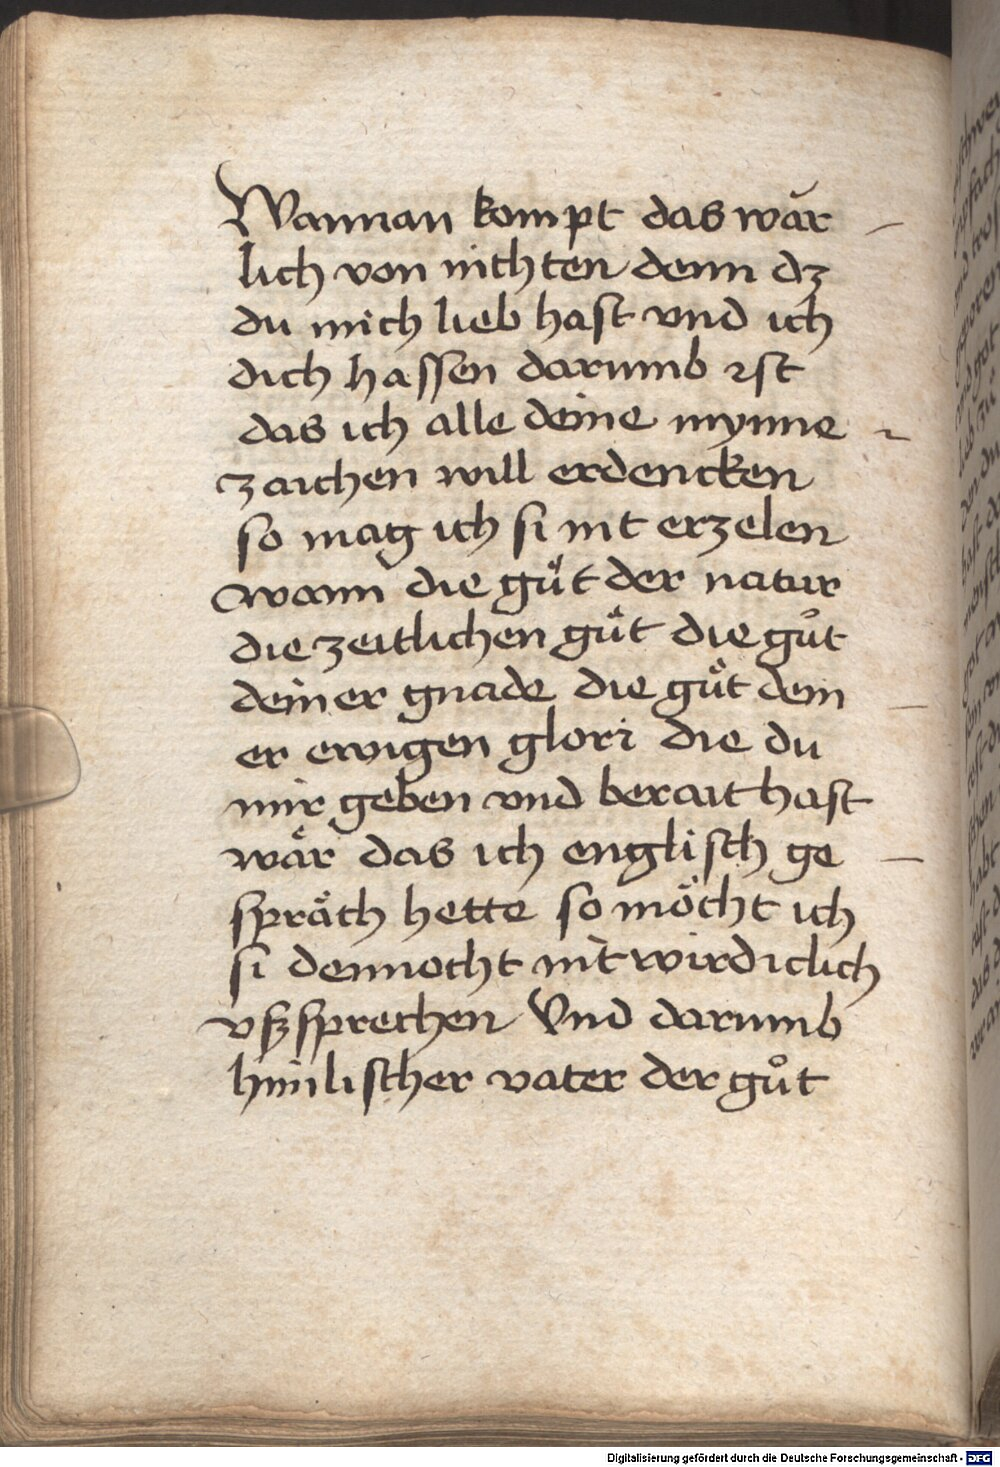 Wannan kompt das wār
lich von nichten denn dz
du mich lieb hast vnd ich
dich hassen darumb ist
das ich alle deine mynne
zaichen will erdencken
so mag ich si nit erzelen
wann die guͤt der natur
die zeitlichen guͤt die guͦt
deiner gnade die guͤt dein
er ewigen glori die du
mir geben vnd berait hast
waͤr das ich englisch ge
spraͤch hette so moͤcht ich
si dennocht nit wirdiclich
vßsprechen Vnd darumb
himlischer vater der guͦt
Digitalisierung gefördert durch die Deutsche Forschungsgemeinschaft - DFG